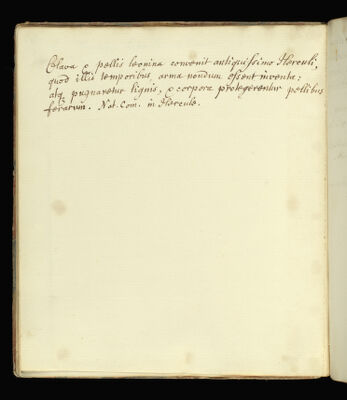 Clava & pellis leonina convenit antiquissimo Herculi,
quod illis temporibus arma nondum essent inventa;
atq pugnaretur lignis, & corpora protegerentur pellibus
ferarum. Nat. Com. in Hercule.